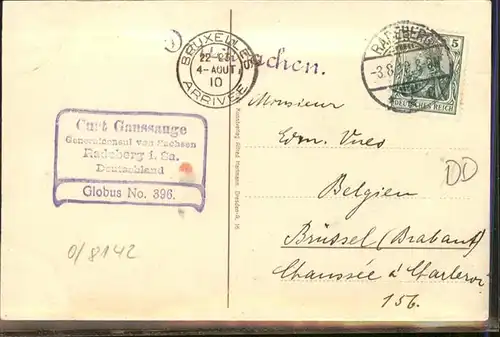 BRUXELLES
22-23
4-AOUT
10
ARRIVÉE
achen.
RADEBERG
-3.8
5
DEUTSCHES REICH
Curt Gaussauge
Generalconsul van Sachsen
Radeberg i. Sa.
Deutschland
Globus No. 396.
0/8142
Kunstverlag Alfred Hartmann, Dresden-A. 16
Monsieur
Edm. Vues
Belgien
Brüssel (Brabant)
Chaussée à Charleroi
156.
DD